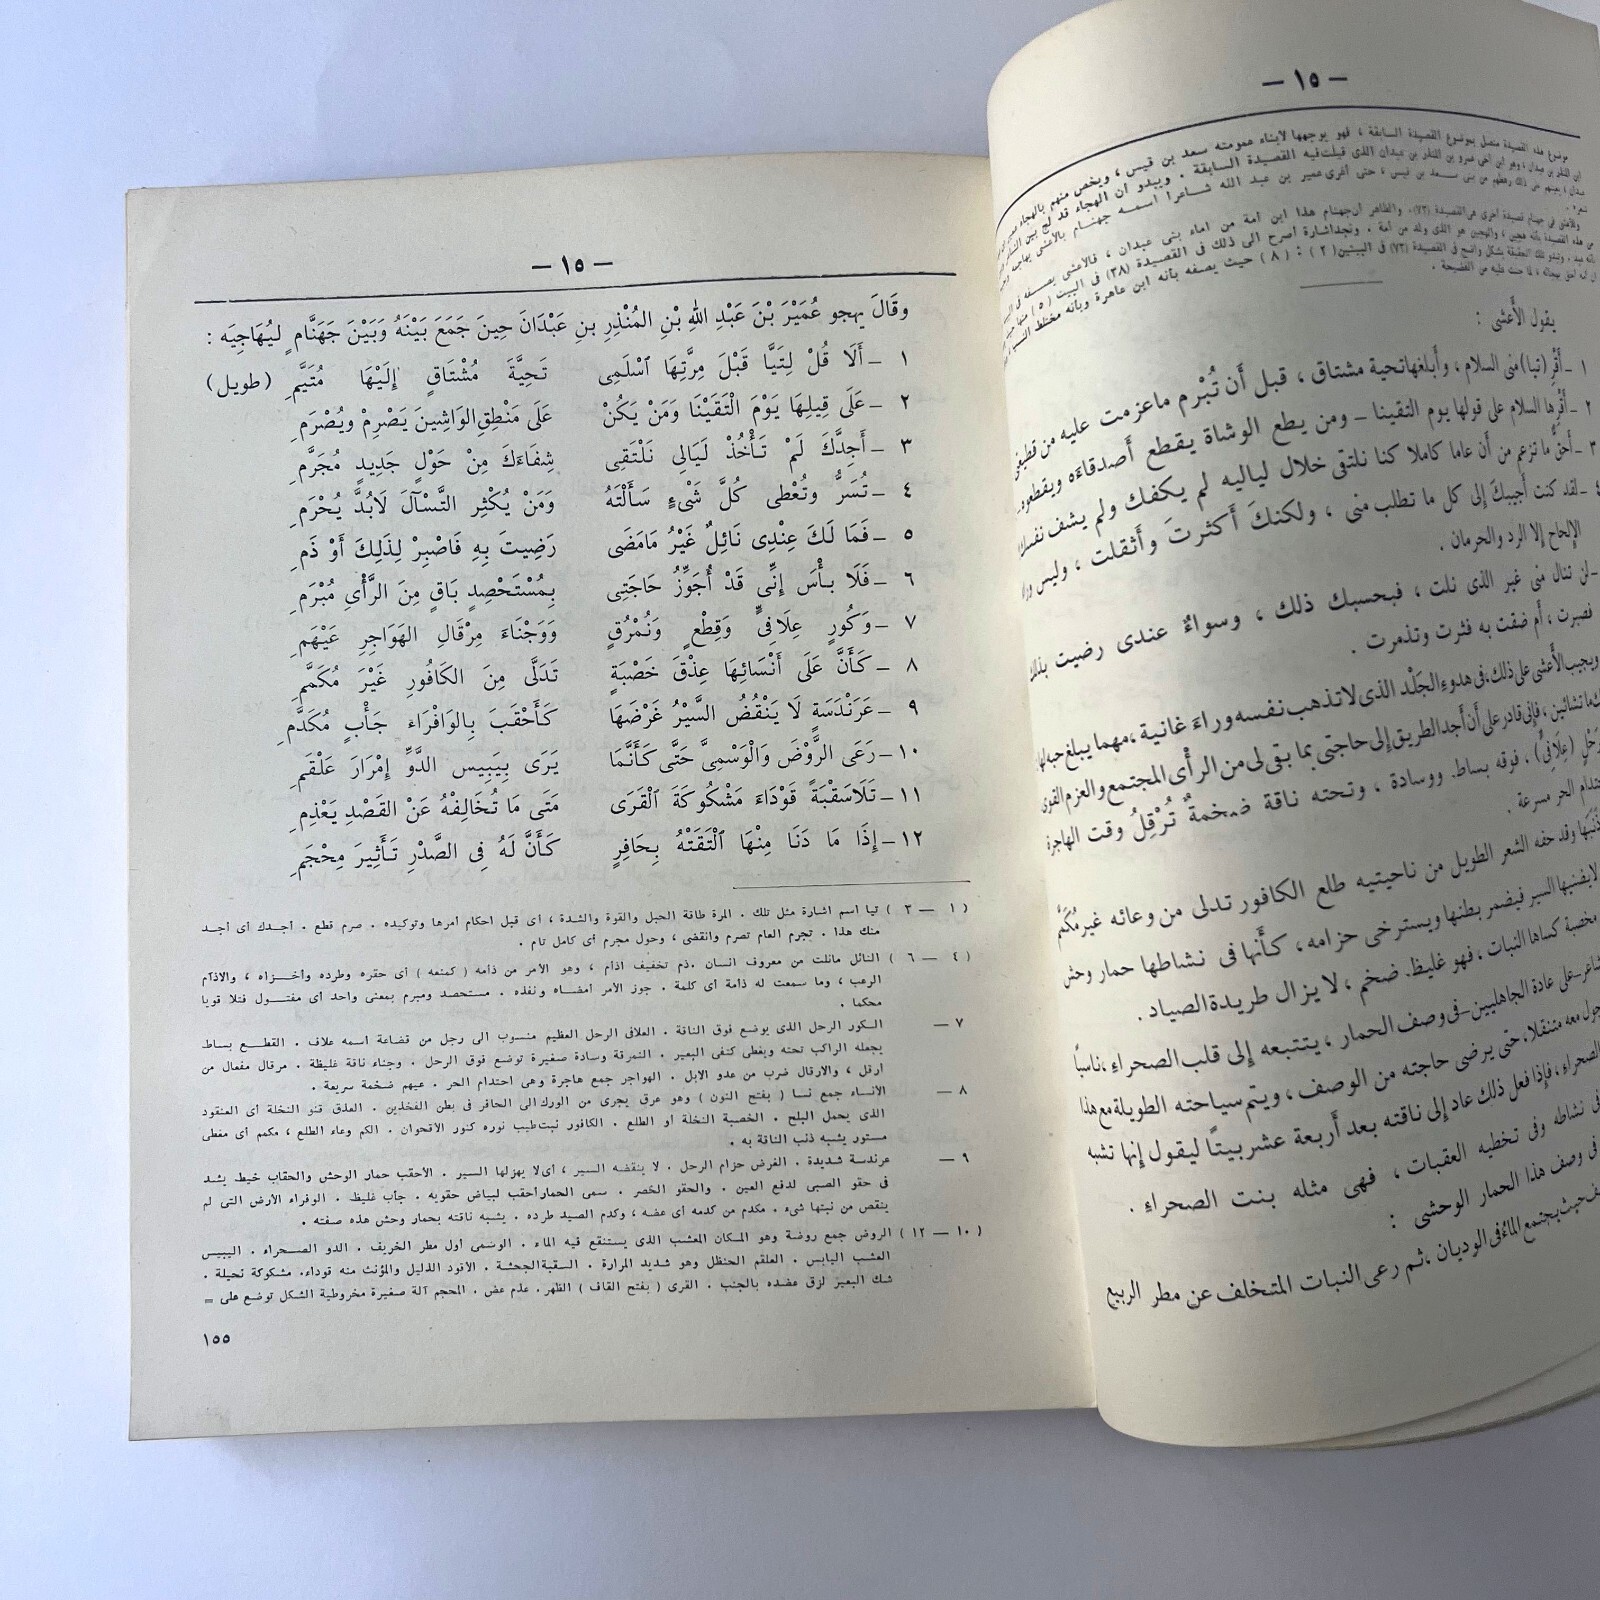 — ١٥ —
موضوع هذه القصيدة متصل بموضوع القصيدة السابقة ، فهو يوجهها لابناء عمومته سعد بن قيس ، ويخص منهم بالهجاء
ابن المنذر بن عبدان ، وهو ابن أخى عمرو بن المنذر بن عبدان الذى قيلت فيه القصيدة السابقة . ويبدو أن الهجاء قد لج بين
عبدان ، يعينهم على ذلك رهطهم من بنى سعد بن قيس ، حتى أغرى عمير بن عبد الله شاعرا اسمه جهنام بالأعشى يهاجيه
شعره .
وللأعشى فى جهنام قصيدة أخرى هى القصيدة (٧٣). والظاهر أن جهنام هذا ابن أمة من اماء بنى عبدان ، فالأعشى يصفه فى
فى هذه القصيدة بأنه هجين ، والهجين هو الذى ولد من أمة . ونجد اشارة أصرح الى ذلك فى القصيدة (٣٨) فى البيت (٥) منها
بأنه عبد . وتبدو تلك الحقيقة بشكل واضح فى القصيدة (٧٣) فى البيتين (٢) : (٨) حيث يصفه بأنه ابن عاهرة وبأنه مختلط النسب
من الفضيحة .
يقول الأعشى :
١ – أَقْرِ (تيا) منى السلام ، وأبلغها تحية مشتاق ، قبل أن تُبْرم ما عزمت عليه من قطيعتى
٢ – أقْرِها السلام على قولها يوم التقينا – ومن يطع الوشاة يقطع أصدقاءه ويقطعوه
٣ – أحقٌّ ما تزعم من أن عاما كاملا كنا نلتقى خلال لياليه لم يكفك ولم يشف نفسك
٤ – لقد كنت أجيبك إلى كل ما تطلب منى ، ولكنكَ أكثرتَ وأثقلت ، وليس وراء
الإلحاح إلا الرد والحرمان .
– لن تنال منى غير الذى نلت ، فبحسبك ذلك ، وسواءٌ عندى رضيت بذلك
فصبرت ، أم ضقت به فثرت وتذمرت .
ويجيب الأعشى على ذلك، فى هدوء الجَلْد الذى لا تذهب نفسه وراء غانية ، مهما يبلغ حبه لها
ما تشائين ، فإنى قادر على أن أجد الطريق إلى حاجتى بما بقى لى من الرأى المجتمع والعزم القوى
رَحْلٍ (عِلَافِىٍّ) . فوقه بساط. ووسادة ، وتحته ناقة ضخمةٌ تُرْقِلُ وقت الهاجرة
احتدام الحر مسرعة .
ذَنَبَها وقد حفه الشعر الطويل من ناحيتيه طلع الكافور تدلى من وعائه غير مُكَمَّم
لا يفنيها السير فيضمر بطنها ويسترخى حزامه ، كأنها فى نشاطها حمار وحش
مخصبة كساها النبات ، فهو غليظ. ضخم ، لا يزال طريدة الصياد .
الشاعر – على عادة الجاهليين – فى وصف الحمار ، يتتبعه إلى قلب الصحراء ، ناسبًا
يجول معه متنقلا، حتى يرضى حاجته من الوصف ، ويتم سياحته الطويلة مع هذا
الصحراء ، فإذا فعل ذلك عاد إلى ناقته بعد أربعة عشر بيتًا ليقول إنها تشبه
فى نشاطه وفى تخطيه العقبات ، فهى مثله بنت الصحراء .
فى وصف هذا الحمار الوحشى :
حيث يجتمع الماءُ فى الوديان ، ثم رعى النبات المتخلف عن مطر الربيع
— ١٥ —
وقَالَ يهجو عُمَيْرَ بْنَ عَبْدِ اللهِ بْنِ المُنْذِرِ بنِ عَبْدَانَ حِينَ جَمَعَ بَيْنَهُ وَبَيْنَ جَهَنَّامٍ ليُهَاجِيَه :
١ – أَلَا قُلْ لِتَيَّا قَبْلَ مِرَّتِهَا اسْلَمِى تَحِيَّةَ مُشْتَاقٍ إِلَيْهَا مُتَيَّمِ (طويل)
٢ – عَلَى قِيلِهَا يَوْمَ الْتَقَيْنَا وَمَنْ يَكُنْ عَلَى مَنْطِقِ الوَاشِينَ يَصْرِمْ ويُصْرَمِ
٣ – أَجِدَّكَ لَمْ تَأْخُذْ لَيَالِى نَلْتَقِى شِفَاءَكَ مِنْ حَوْلٍ جَدِيدٍ مُجَرَّمِ
٤ – تُسَرُّ وتُعْطَى كُلَّ شَىْءٍ سَأَلْتَهُ وَمَنْ يُكْثِرِ التَّسْآلَ لَابُدَّ يُحْرَمِ
٥ – فَمَا لَكَ عِنْدِى نَائِلٌ غَيْرُ مَامَضَى رَضِيتَ بِهِ فَاصْبِرْ لِذَلِكَ أَوْ ذَمِ
٦ – فَلَا بأْسَ إِنِّى قَدْ أُجَوِّزُ حَاجَتِى بِمُسْتَحْصِدٍ بَاقٍ مِنَ الرَّأْىِ مُبْرَمِ
٧ – وَكُورٍ عِلَافِىٍّ وَقِطْعٍ وَنُمْرُقٍ وَوَجْنَاءَ مِرْقَالِ الهَوَاجِرِ عَيْهَمِ
٨ – كَأَنَّ عَلَى أَنْسَائِهَا عِذْقَ خَصْبَةٍ تَدَلَّى مِنَ الكَافُورِ غَيْرَ مُكَمَّمِ
٩ – عَرَنْدَسَةٍ لَا يَنْقُضُ السَّيْرُ غَرْضَهَا كَأَحْقَبَ بِالوَفْرَاءِ جَأْبٍ مُكَدَّمِ
١٠ – رَعَى الرَّوْضَ وَالْوَسْمِىَّ حَتَّى كَأَنَّمَا يَرَى بِيَبِيسِ الدَّوِّ إِمْرَارَ عَلْقَمِ
١١ – تَلَا سَقْبَةً قَوْدَاءَ مَشْكُوكَةَ الْقَرَى مَتَى مَا تُخَالِفْهُ عَنْ القَصْدِ يَعْذِمِ
١٢ – إِذَا مَا دَنَا مِنْهَا الْتَقَتْهُ بِحَافِرٍ كَأَنَّ لَهُ فِى الصَّدْرِ تَأْثِيرَ مِحْجَمِ
( ١ – ٣ ) تيا اسم اشارة مثل تلك . المرة طاقة الحبل والقوة والشدة ، أى قبل احكام أمرها وتوكيده . صرم قطع . أجدك أى أجد
منك هذا . تجرم العام تصرم وانقضى ، وحول مجرم أى كامل تام .
( ٤ – ٦ ) النائل مانلت من معروف انسان . ذم تخفيف اذأم ، وهو الأمر من ذأمه ( كمنعه ) أى حقره وطرده وأخزاه ، والاذآم
الرعب ، وما سمعت له ذأمة أى كلمة . جوز الأمر أمضاه ونفذه . مستحصد ومبرم بمعنى واحد أى مفتول فتلا قويا
محكما .
٧ – الكور الرحل الذى يوضع فوق الناقة . العلافى الرحل العظيم منسوب الى رجل من قضاعة اسمه علاف . القطع بساط
يجعله الراكب تحته ويغطى كتفى البعير . النمرقة وسادة صغيرة توضع فوق الرحل . وجناء ناقة غليظة . مرقال مفعال من
أرقل ، والارقال ضرب من عدو الابل . الهواجر جمع هاجرة وهى احتدام الحر . عيهم ضخمة سريعة .
٨ – الأنساء جمع نسا ( بفتح النون ) وهو عرق يجرى من الورك الى الحافر فى بطن الفخذين . العذق قنو النخلة أى العنقود
الذى يحمل البلح . الخصبة النخلة أو الطلع . الكافور نبت طيب نوره كنور الاقحوان . الكم وعاء الطلع ، مكمم أى مغطى
مستور يشبه ذنب الناقة به .
٩ – عرندسة شديدة . الغرض حزام الرحل . لا ينقضه السير ، أى لا يهزلها السير . الأحقب حمار الوحش والحقاب خيط يشد
فى حقو الصبى لدفع العين . والحقو الخصر . سمى الحمار أحقب لبياض حقويه . جأب غليظ . الوفراء الأرض التى لم
ينقص من نبتها شىء . مكدم من كدمه أى عضه ، وكدم الصيد طرده . يشبه ناقته بحمار وحش هذه صفته .
( ١٠ – ١٢ ) الروض جمع روضة وهو المكان المعشب الذى يستنقع فيه الماء . الوسمى أول مطر الخريف . الدو الصحراء . اليبيس
العشب اليابس . العلقم الحنظل وهو شديد المرارة . السقبة الجحشة . الأقود الذليل والمؤنث منه قوداء. مشكوكة نحيلة .
شك البعير لزق عضده بالجنب . القرى ( بفتح القاف ) الظهر. عذم عض . المحجم آلة صغيرة مخروطية الشكل توضع على =
١٥٥